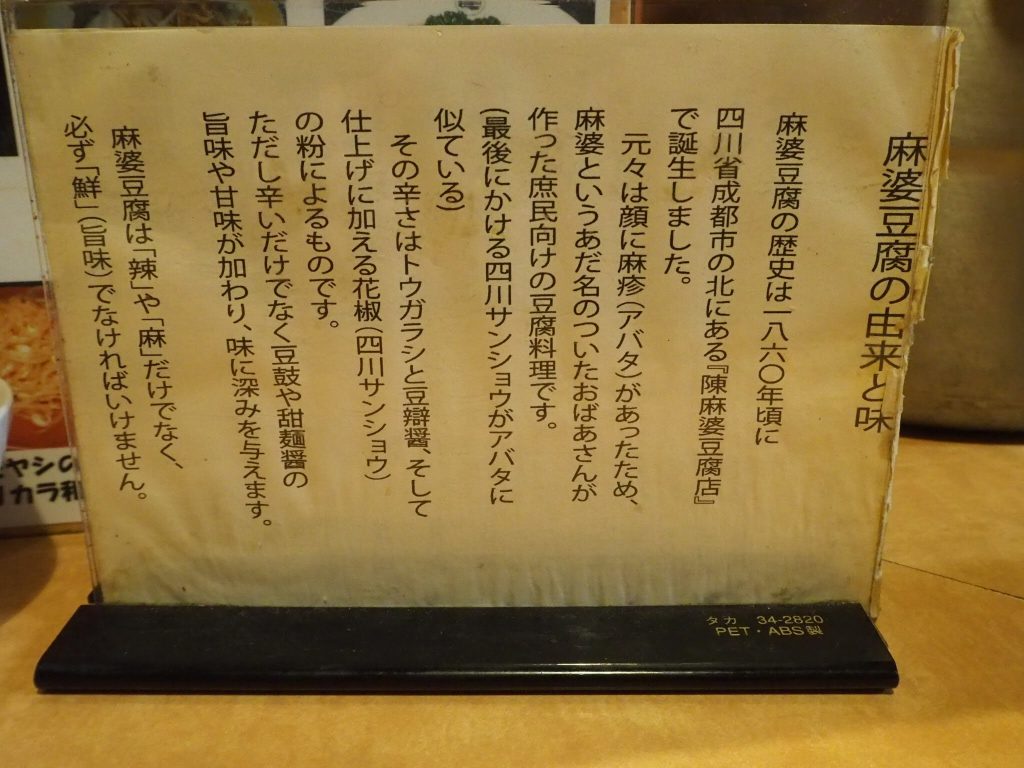 麻婆豆腐の由来と味
麻婆豆腐の歴史は一八六〇年頃に
四川省成都市の北にある『陳麻婆豆腐店』
で誕生しました。
元々は顔に麻疹(アバタ)があったため、
麻婆というあだ名のついたおばあさんが
作った庶民向けの豆腐料理です。
(最後にかける四川サンショウがアバタに
似ている)
その辛さはトウガラシと豆辯醤、そして
仕上げに加える花椒(四川サンショウ)
の粉によるものです。
ただし辛いだけでなく豆鼓や甜麺醤の
旨味や甘味が加わり、味に深みを与えます。
麻婆豆腐は「辣」や「麻」だけでなく、
必ず「鮮」(旨味)でなければいけません。
タカ 34-2820
PET・ABS製
ヤシの
カラ和